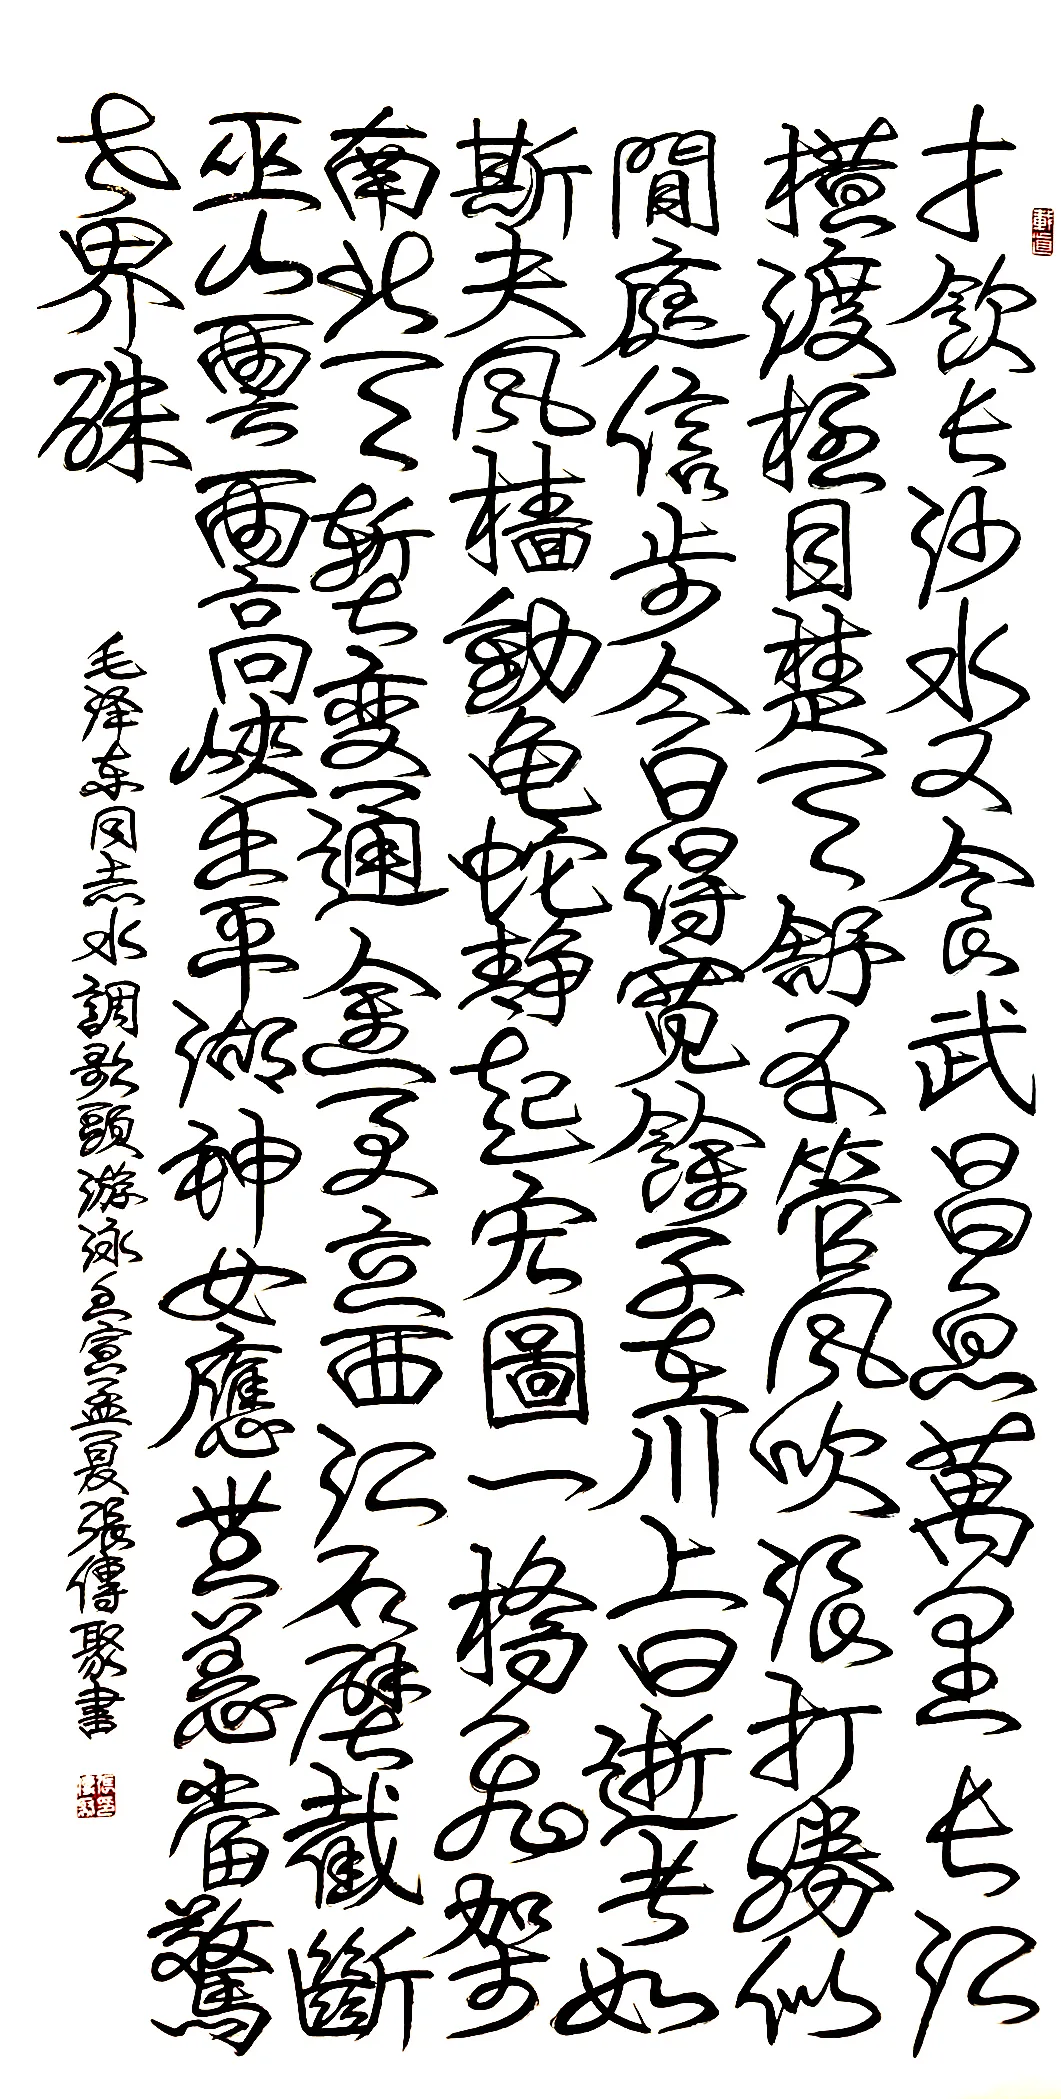 才飲长沙水又食武昌魚萬里长江
横渡極目楚天舒不管风吹浪打勝似
閒庭信步今日得寬餘子在川上曰逝者如
斯夫风檣動龟蛇静起宏圖一橋飛架
南北天塹变通途更立西江石壁截斷
巫山雲雨高峽出平湖神女應無恙當驚
世界殊
毛泽东同志水調歌頭游泳壬寅孟夏張傳聚書